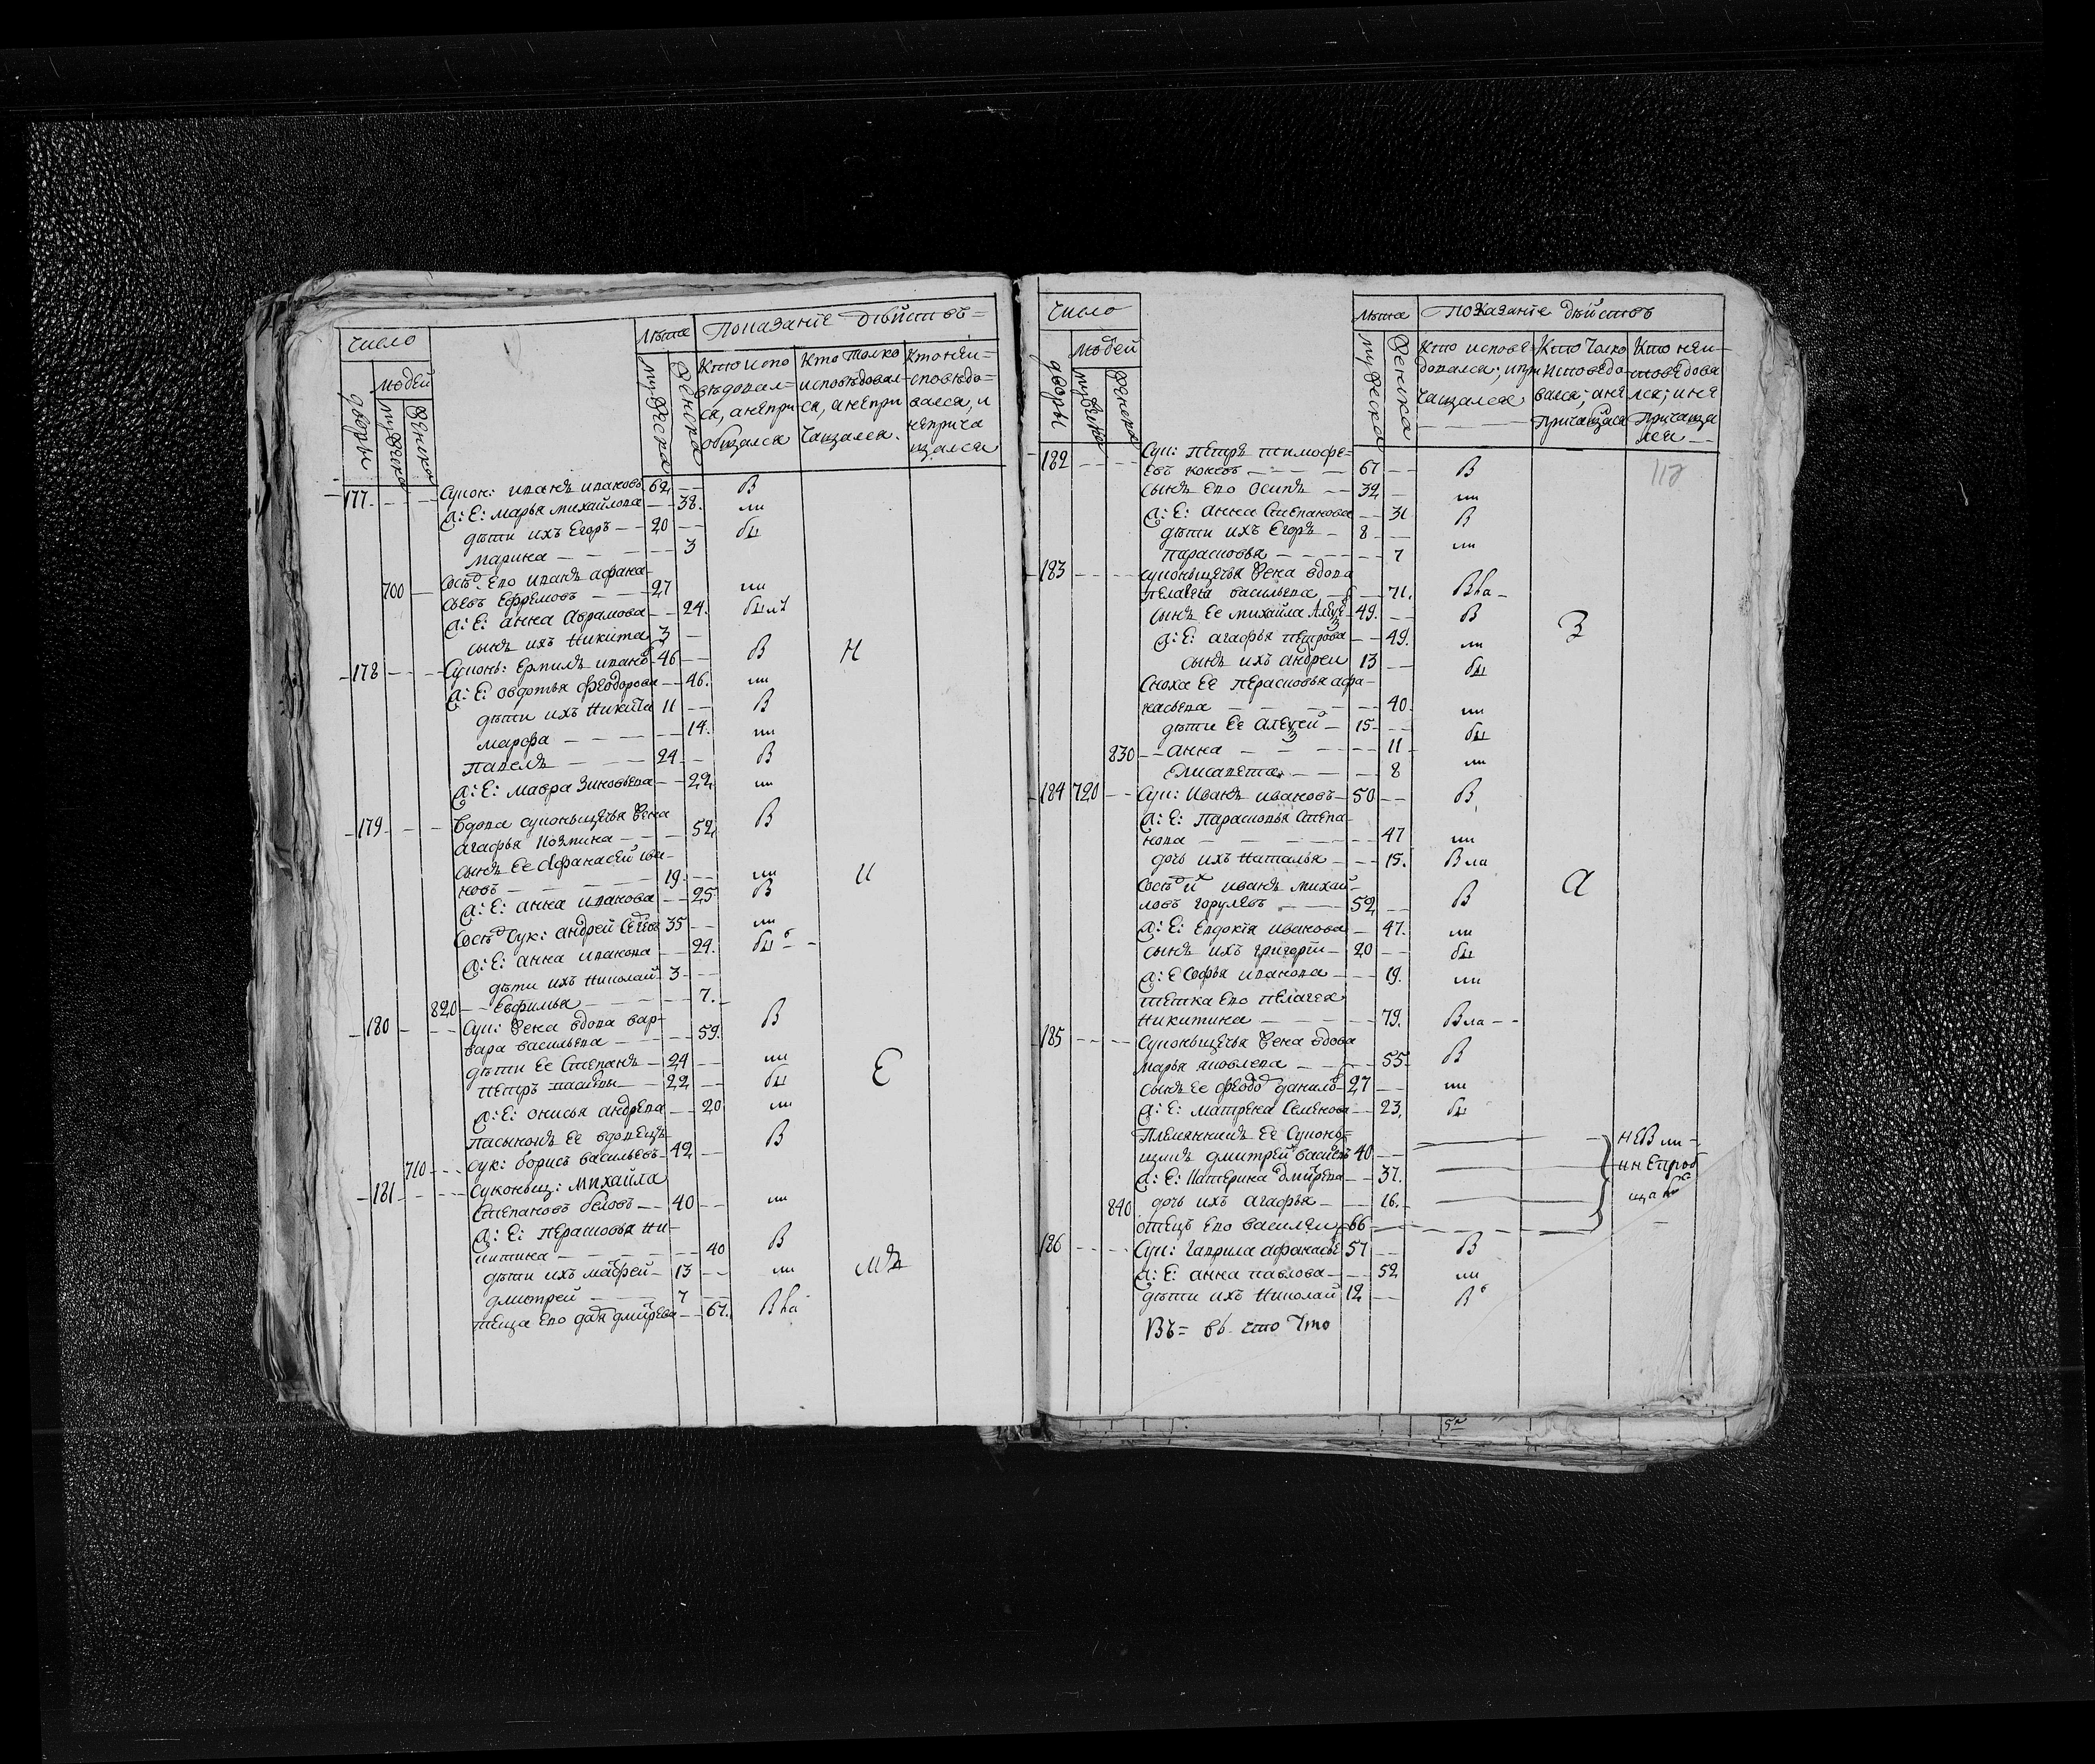 число
Лѣта
Показаніе дѣйствъ=
людей
дворы
мужеска
женска
мужеска
женска
Кто испо
вѣдовал=
ся, а не при
общался
Кто толко
исповѣдовал
ся, а не при
чащался.
Кто не и=
сповѣдо=
вался, и
неприча
щался
177. Сукон: иванъ ивановъ 62 В
ж: Е: марья михайлова 38. ли
дѣти ихъ Егоръ 20 бы
Марина 3
Сосѣд: Его иванъ афана-
700 сьевъ Ефремовъ 27 ли
ж: Е: анна Аврамова 24. бы
сынъ ихъ Никита 3
178 Суконь: Ермилъ ивано 46 В Н
ж: Е: овдотья феодорова 46. ли
дѣти ихъ Никита 11 В
марфа 14. ли
павелъ 24 В
ж: Е: мавра Зиновьева 22 ли
179 Вдова суконьщечья жена В
агафья 52
сынъ Ее Афанасей ива-
новъ 19 ли И
ж: Е: анна иванова 25 В
Сосѣд Сук: андрей 35 ли
ж: Е: анна иванова 24. бы
дѣти ихъ Николай 3
820 Евфимья 7.
180 Сук: жена вдова вар-
вара васильева 59. В
дѣти Ее Степанъ 24 ли
петръ 22 бы Е
ж: Е: онисья андрева 20 ли
пасынокъ Ее вдовецъ
710 Сук: борисъ васильевъ 42 В
181 Суконьщ: Михайла
Степановъ бѣловъ 40 ли
ж: Е: Перасковья ни-
китина 40 В
дѣти ихъ матфей 13 ли мъ
дмитрей 7
теща Его дмитрева 67. Вла
Число
Лѣта
Показаніе дѣйствъ
людей
дворы
мужеска
женска
мужеска
женска
Кто исповѣ
довался, и при
чащался
Кто толко
исповѣдо
вался, а не
причащался
Кто не и-
сповѣдова
лся, и не
причаща
лся
117
182 Сук: Петръ тимофе-
евъ 67 В
сынъ Его осипъ 32 ли
ж: Е: анна Степанова 31 В
дѣти ихъ Егоръ 8
парасковья 7 ли
183 суконьщечья жена вдова
пелагея васильева 71. Вла
сынъ Ее михайла 49. В З
ж: Е: агафья петрова 49. ли
сынъ ихъ андреи 13 бы
Сноха Ее перасковья афа-
насьева 40. ли
дѣти Ее алексей 15 бы
830 анна 11
Елисавета 8 ли
184 720 Сук: Иванъ ивановъ 50 В
ж: Е: Парасковья Степа-
нова 47 ли
дочь ихъ Наталья 15. Вла
Сосѣд и иванъ михай-
ловъ горулевъ 52 В А
ж: Е: Евдокія иванова 47. ли
сынъ ихъ григорий 20 бы
ж: Е Софья иванова 19. ли
тетка Его пелагея
Никитина 79. Вла
185 Суконьщечья жена вдова
марья яковлева 55 В
сынъ Ее данило 27 ли
ж: Е: матрена Семенова 23, бы
Племянникъ Ее Суконь=
щикъ дмитрей васильевъ 40 не В ли
ж: Е: Катерина дмитрева 37. и не
840 дочь ихъ агафья 16.
отецъ Его василеи 66
186 Сук: гаврила афанасье 57 В
ж: Е: анна павлова 52 ли
дѣти ихъ Николай 12 В
Въ= въ что что